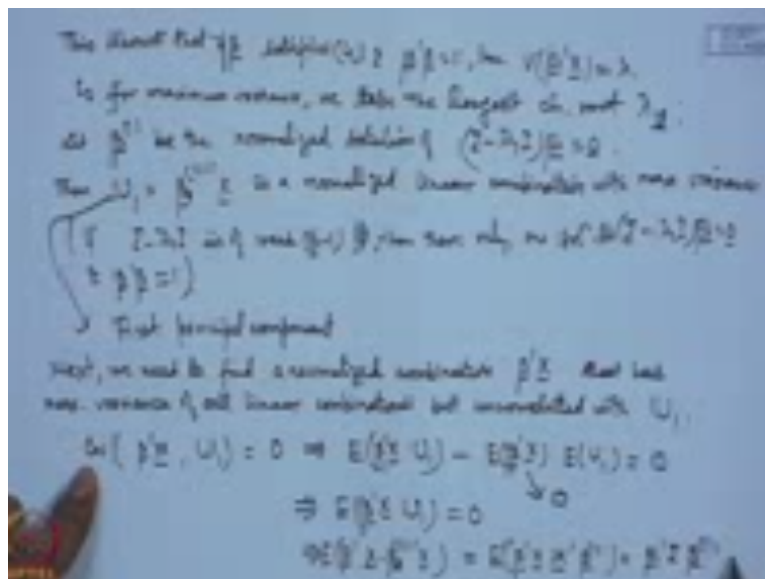 This shows that if β satisfies (2) & β'β=1, then V(β'x) = λ.
So for maximum variance, we take the largest ch. root λ₁.
Let β⁽¹⁾ be the normalized solution of (Σ-λ₁I)β=0.
Then U₁ = β⁽¹⁾'x is a normalized linear combination with max variance
(if Σ-λ₁I is of rank (p-1), then there only one solⁿ to (Σ-λ₁I)β=0
& β'β=1)
→ First principal component
Next, we need to find a normalized combination β'x that has
max. variance of all linear combinations but uncorrelated with U₁.
Cov(β'x, U₁) = 0 ⇒ E(β'x U₁) - E(β'x) E(U₁) = 0
0
⇒ E(β'x U₁) = 0
⇒ E(β'x β⁽¹⁾'x) = E(β'x x'β⁽¹⁾) = β'Σβ⁽¹⁾